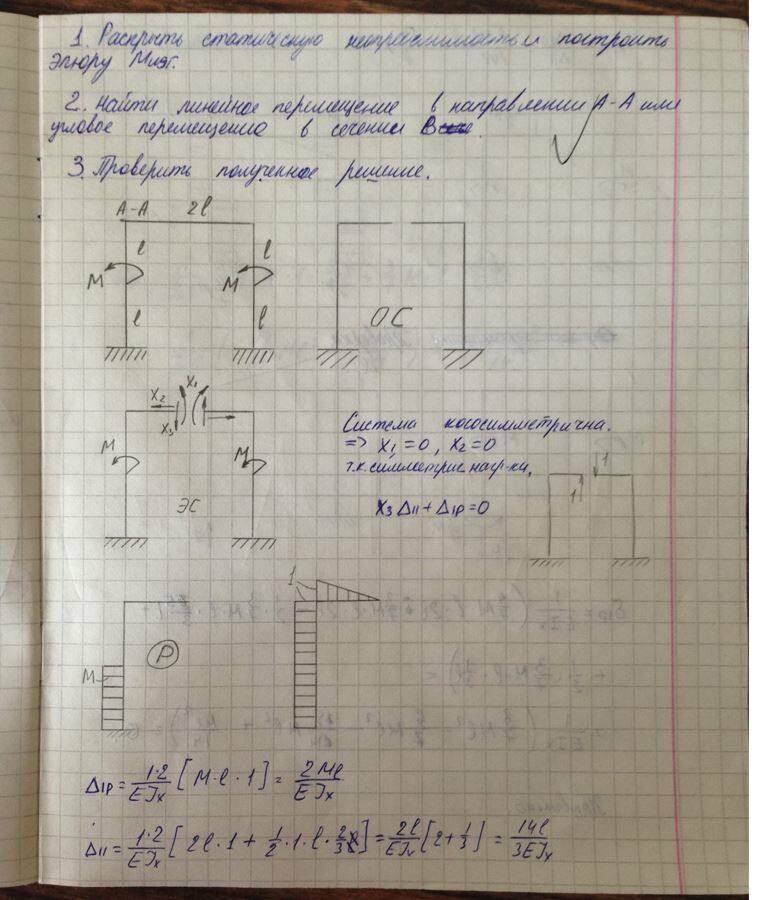 1. Раскрыть статическую неопределимость и построить
эпюру Мизг.
2. Найти линейное перемещение в направлении А-А или
угловое перемещение в сечении В
3. Проверить полученное решение.
A-A 2l
l l
M M
l l
ОС
X₂ X₁
X₃
M M
ЭС
Система кососимметрична.
=> X₁=0, X₂=0
т.к. симметрич нагр-ки.
X₃ Δ₁₁ + Δ₁p = 0
1 1
M P 1
Δ₁p = 1·2/EJx [M·l·1] = 2Ml/EJx
Δ₁₁ = 1·2/EJx [2l·1 + 1/2·1·l·2/3] = 2l/EJx [2+1/3] = 14l/3EJx